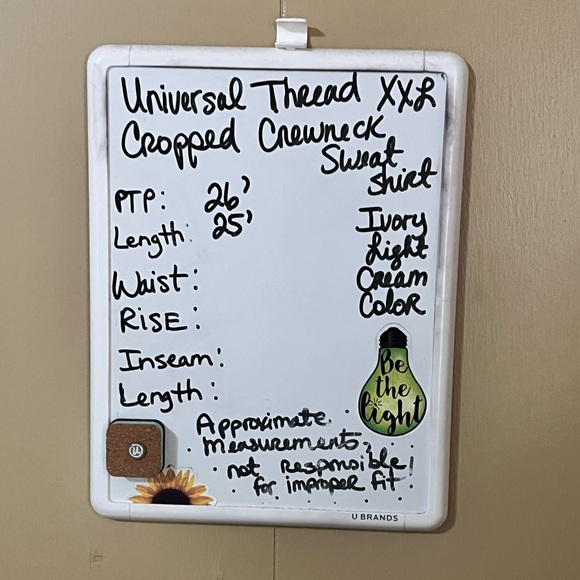 Universal Thread XXL
Cropped Crewneck
Sweat
Shirt
PTP: 26'
Length: 25'
Ivory
Light
Cream
Color
Waist:
RISE:
Inseam:
Length:
Be
the
light
Approximate
measurements,
not responsible
for improper fit!
U BRANDS